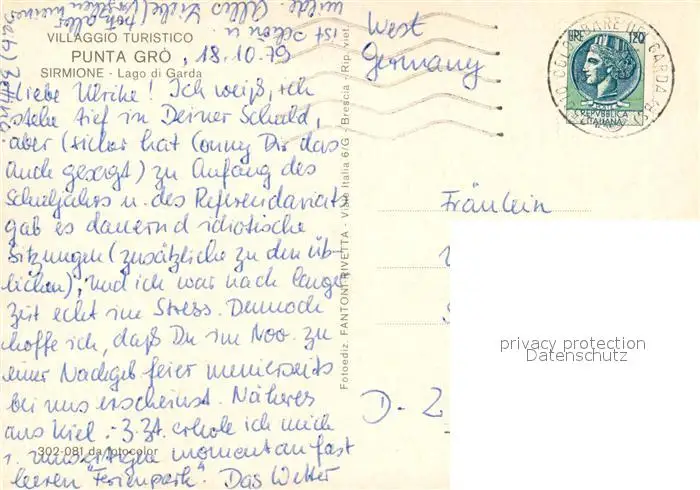 VILLAGGIO TURISTICO
PUNTA GRÒ, 18.10.79
SIRMIONE - Lago di Garda
Liebe Ulrike! Ich weiß, ich
stehe tief in Deiner Schuld,
aber (sicher hat Conny Dir das
auch gesagt) zu Anfang des
Schuljahrs u. des Referendariats
gab es dauernd idiotische
Sitzungen (zusätzliche zu den üb-
lichen), und ich war nach langer
Zeit echt im Stress. Dennoch
hoffe ich, daß Du im Nov. zu
einer Nachgeb feier meinerseits
bei uns erscheinst. Näheres
aus Kiel. - Z.Zt. erhole ich mich
momentan fast
leeren "Ferienpark". Das Wetter
ist schön u.
milde. Alles Liebe
302-081 da fotocolor
Fotoediz. FANTONI-RIVETTA - Viale Italia 6/G - Brescia - Rip. viet.
West
Germany
LIRE 120
REPVBBLICA
ITALIANA
Fräulein
D-2
privacy protection
Datenschutz